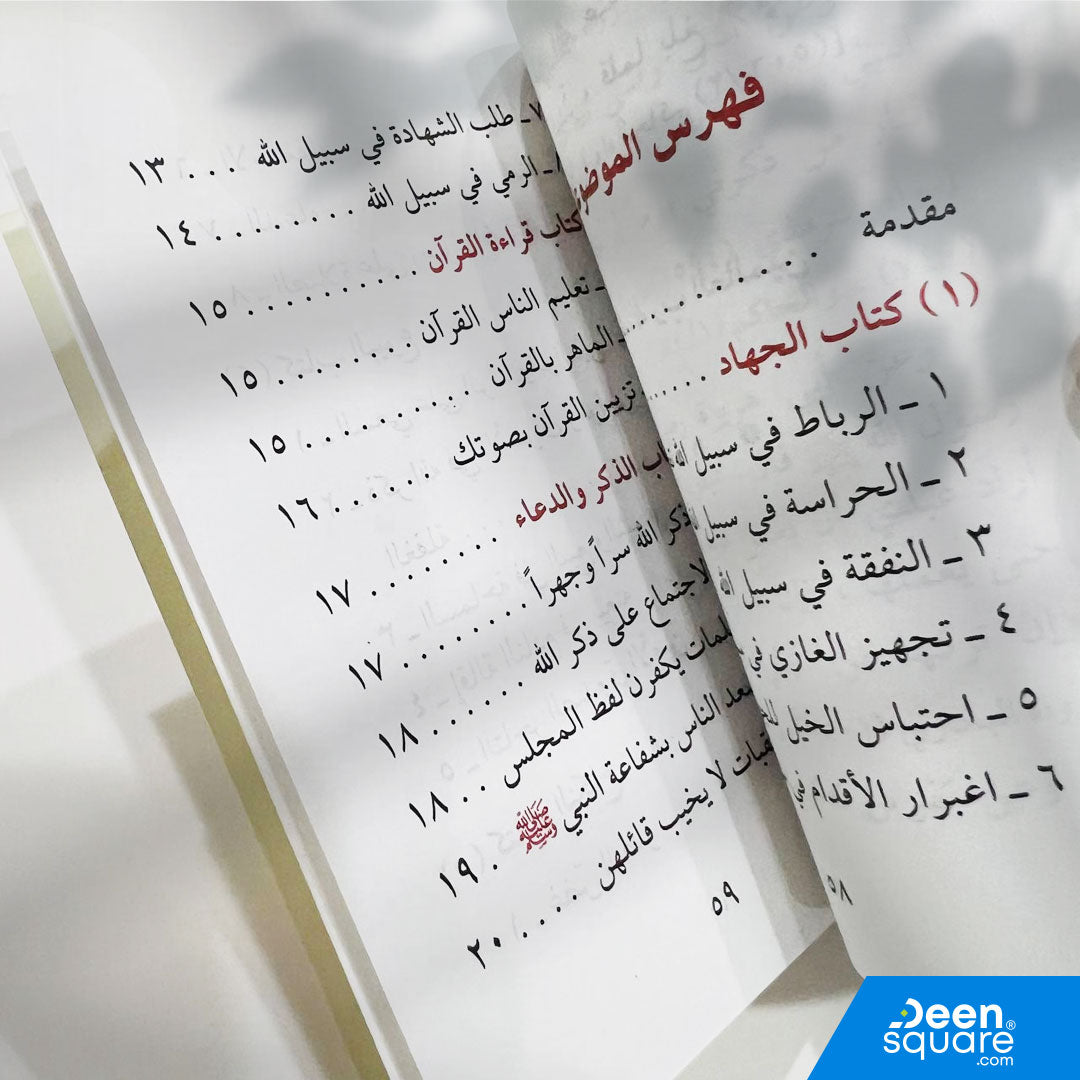 فهرس
مقدمة . . . . . . . . . .
(١) كتاب الجهاد . . . . . .
١ ـ الرباط في سبيل
٢ ـ الحراسة في سبيل
٣ ـ النفقة في سبيل
٤ ـ تجهيز الغازي في
٥ ـ احتباس الخيل
٦ ـ اغبرار الأقدام في
٥٨
٧ـ طلب الشهادة في سبيل الله . . . ١٣
الرمي في سبيل الله . . . . . . . . ١٤
كتاب قراءة القرآن . . . . . . . . . ١٥
ـ تعليم الناس القرآن . . . . . . . . ١٥
ـ الماهر بالقرآن . . . . . . . . . . ١٥
تزيين القرآن بصوتك . . . . . . ١٦
الذكر والدعاء . . . . . . . . ١٧
ذكر الله سراً وجهراً . . . . . . . . ١٧
الاجتماع على ذكر الله . . . . . . ١٨
يكفرن لفظ المجلس . . ١٨
الناس بشفاعة النبي ﷺ . ١٩
لا يخيب قائلهن . . . . ٢٠
٥٩
Deen®
square
.com